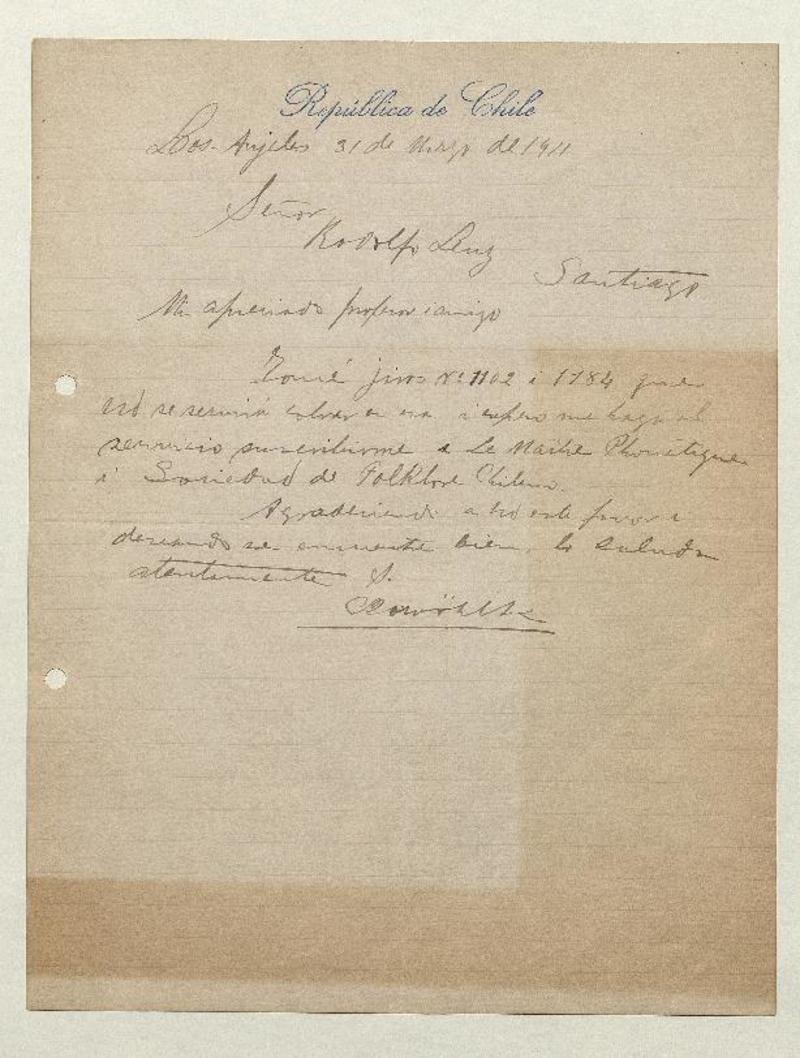 República de Chile
Los Anjeles 31 de Marzo de 1911
Señor
Rodolfo Lenz
Santiago
Mi apreciado profesor i amigo
jiros Nº 1102 i 1784 que
Ud se servirá cobrar en esa i espero me haga el
servicio suscribirme a Le Maitre Phonétique
i Sociedad de Folklore Chileno.
Agradeciendo a Ud este favor i
deseando se encuentre bien, lo saluda
atentamente S.